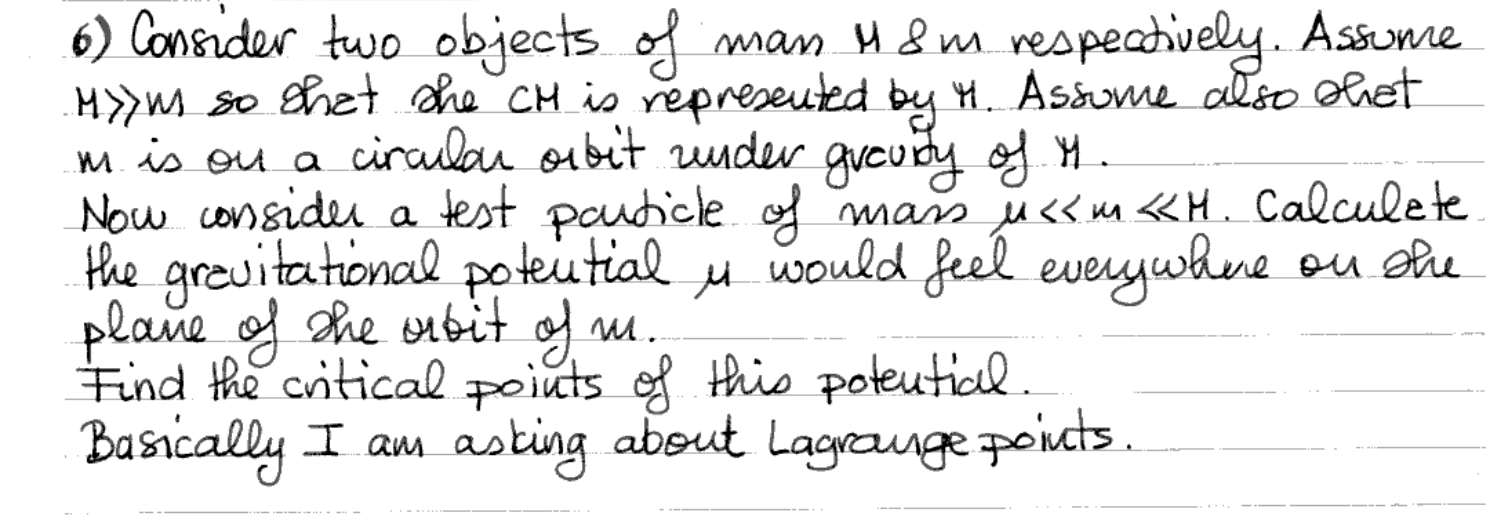 6) Consider two objects of mass M & m respectively. Assume
M>>m so that the CM is represented by M. Assume also that
m is on a circular orbit under gravity of M.
Now consider a test particle of mass μ<<m<<M. Calculate
the gravitational potential μ would feel everywhere on the
plane of the orbit of m.
Find the critical points of this potential.
Basically I am asking about Lagrange points.